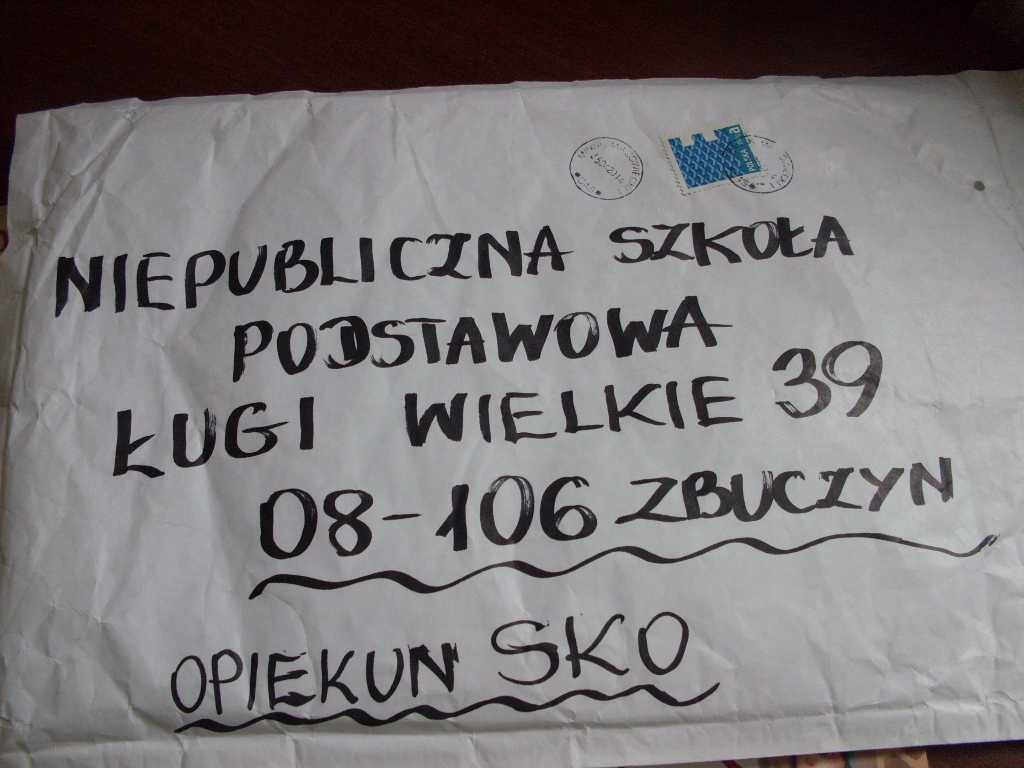 NIEPUBLICZNA SZKOŁA
PODSTAWOWA
ŁUGI WIELKIE 39
08-106 ZBUCZYN
OPIEKUN SKO